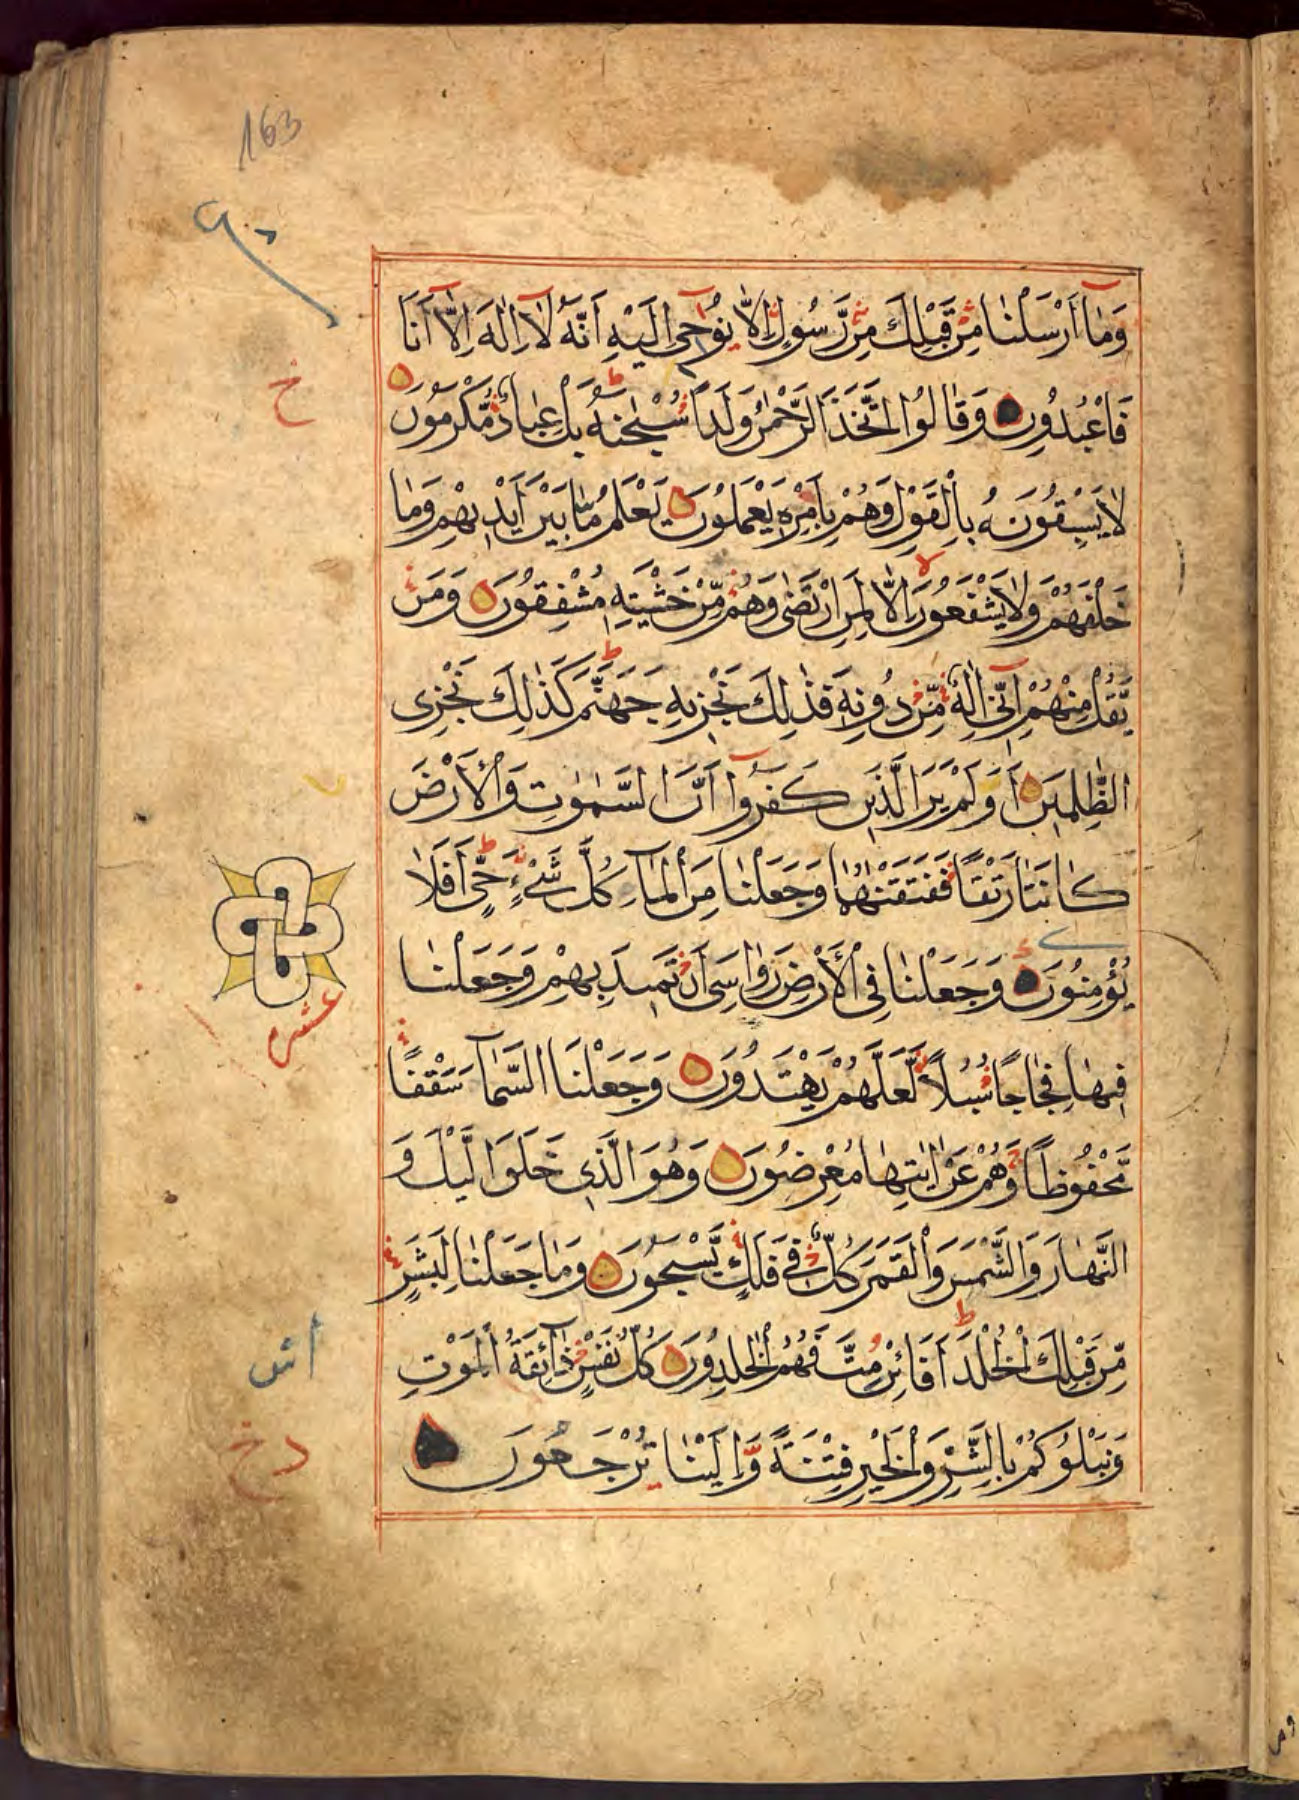 163
وَمَا أَرْسَلْنَا مِنْ قَبْلِكَ مِنْ رَّسُولٍ إِلَّا نُوحِى إِلَيْهِ أَنَّهُ لَا إِلٰهَ إِلَّا أَنَا
فَاعْبُدُونِ وَقَالُوا اتَّخَذَ الرَّحْمٰنُ وَلَداً سُبْحٰنَهُ بَلْ عِبَادٌ مُّكْرَمُونَ
لَا يَسْبِقُونَهُ بِالْقَوْلِ وَهُمْ بِأَمْرِهِ يَعْمَلُونَ يَعْلَمُ مَا بَيْنَ أَيْدِيهِمْ وَمَا
خَلْفَهُمْ وَلَا يَشْفَعُونَ إِلَّا لِمَنِ ارْتَضٰى وَهُمْ مِّنْ خَشْيَتِهِ مُشْفِقُونَ وَمَنْ
يَّقُلْ مِنْهُمْ إِنِّى إِلٰهٌ مِّنْ دُونِهِ فَذٰلِكَ نَجْزِيهِ جَهَنَّمَ كَذٰلِكَ نَجْزِى
الظّٰلِمِينَ أَوَلَمْ يَرَ الَّذِينَ كَفَرُوا أَنَّ السَّمٰوٰتِ وَالْأَرْضَ
كَانَتَا رَتْقاً فَفَتَقْنٰهُمَا وَجَعَلْنَا مِنَ الْمَاءِ كُلَّ شَىْءٍ حَىٍّ أَفَلَا
يُؤْمِنُونَ وَجَعَلْنَا فِى الْأَرْضِ رَوَاسِىَ أَنْ تَمِيدَ بِهِمْ وَجَعَلْنَا
فِيهَا فِجَاجاً سُبُلاً لَّعَلَّهُمْ يَهْتَدُونَ وَجَعَلْنَا السَّمَاءَ سَقْفاً
مَّحْفُوظاً وَهُمْ عَنْ اٰيٰتِهَا مُعْرِضُونَ وَهُوَ الَّذِى خَلَقَ الَّيْلَ وَ
النَّهَارَ وَالشَّمْسَ وَالْقَمَرَ كُلٌّ فِى فَلَكٍ يَّسْبَحُونَ وَمَا جَعَلْنَا لِبَشَرٍ
مِّنْ قَبْلِكَ الْخُلْدَ أَفَائِنْ مِّتَّ فَهُمُ الْخٰلِدُونَ كُلُّ نَفْسٍ ذَائِقَةُ الْمَوْتِ
وَنَبْلُوكُمْ بِالشَّرِّ وَالْخَيْرِ فِتْنَةً وَإِلَيْنَا تُرْجَعُونَ
خ
عشر